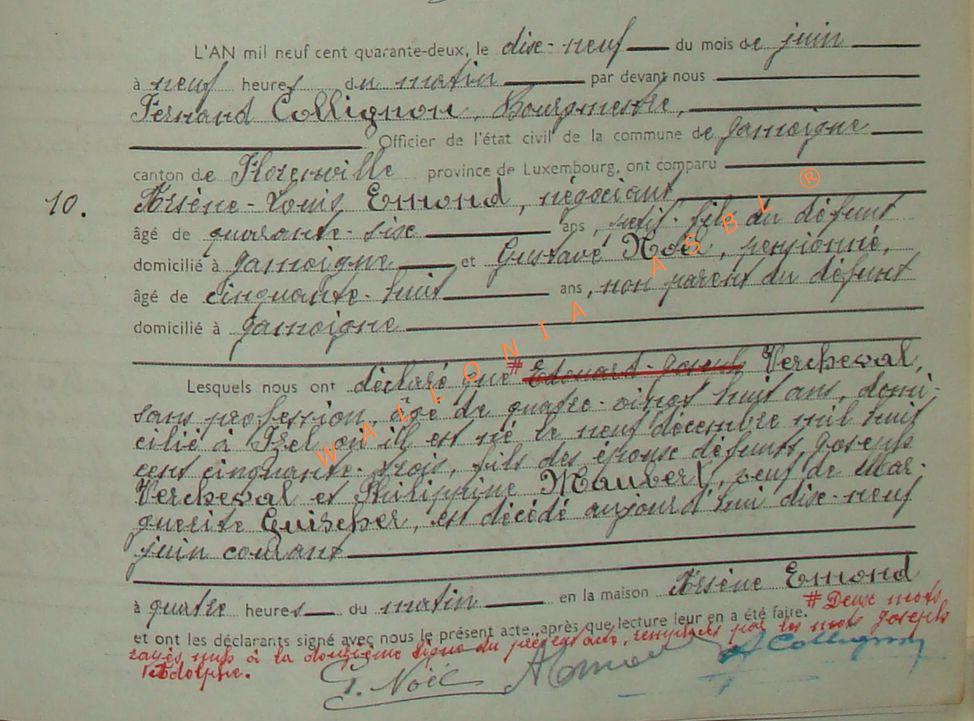 L'AN mil neuf cent quarante-deux, le dix-neuf du mois de juin
à neuf heures du matin par devant nous
Fernand Collignon, Bourgmestre,
Officier de l'état civil de la commune de Jamoigne
canton de Florenville province de Luxembourg, ont comparu
10. Arsène-Louis Emond, négociant
âgé de quarante-six ans, petit-fils du défunt
domicilié à Jamoigne et Gustave Noël, pensionné,
âgé de cinquante-huit ans, non parent du défunt
domicilié à Jamoigne
Lesquels nous ont déclaré que # Edouard-Joseph Vercheval,
sans profession, âgé de quatre-vingt huit ans, domi-
cilié à Izel où il est né le neuf décembre mil huit
cent cinquante-trois, fils des époux défunts Joseph
Vercheval et Philippine Maubert, veuf de Mar-
guerite Guischer, est décédé aujourd'hui dix-neuf
juin courant
à quatre heures du matin en la maison Arsène Emond
et ont les déclarants signé avec nous le présent acte, après que lecture leur en a été faire. # Deux mots
rayés nuls à la douzième ligne du présent acte, remplacés par les mots Joseph
Adolphe.
G. Noël A Emond Collignon
WALLONIA ASBL ®